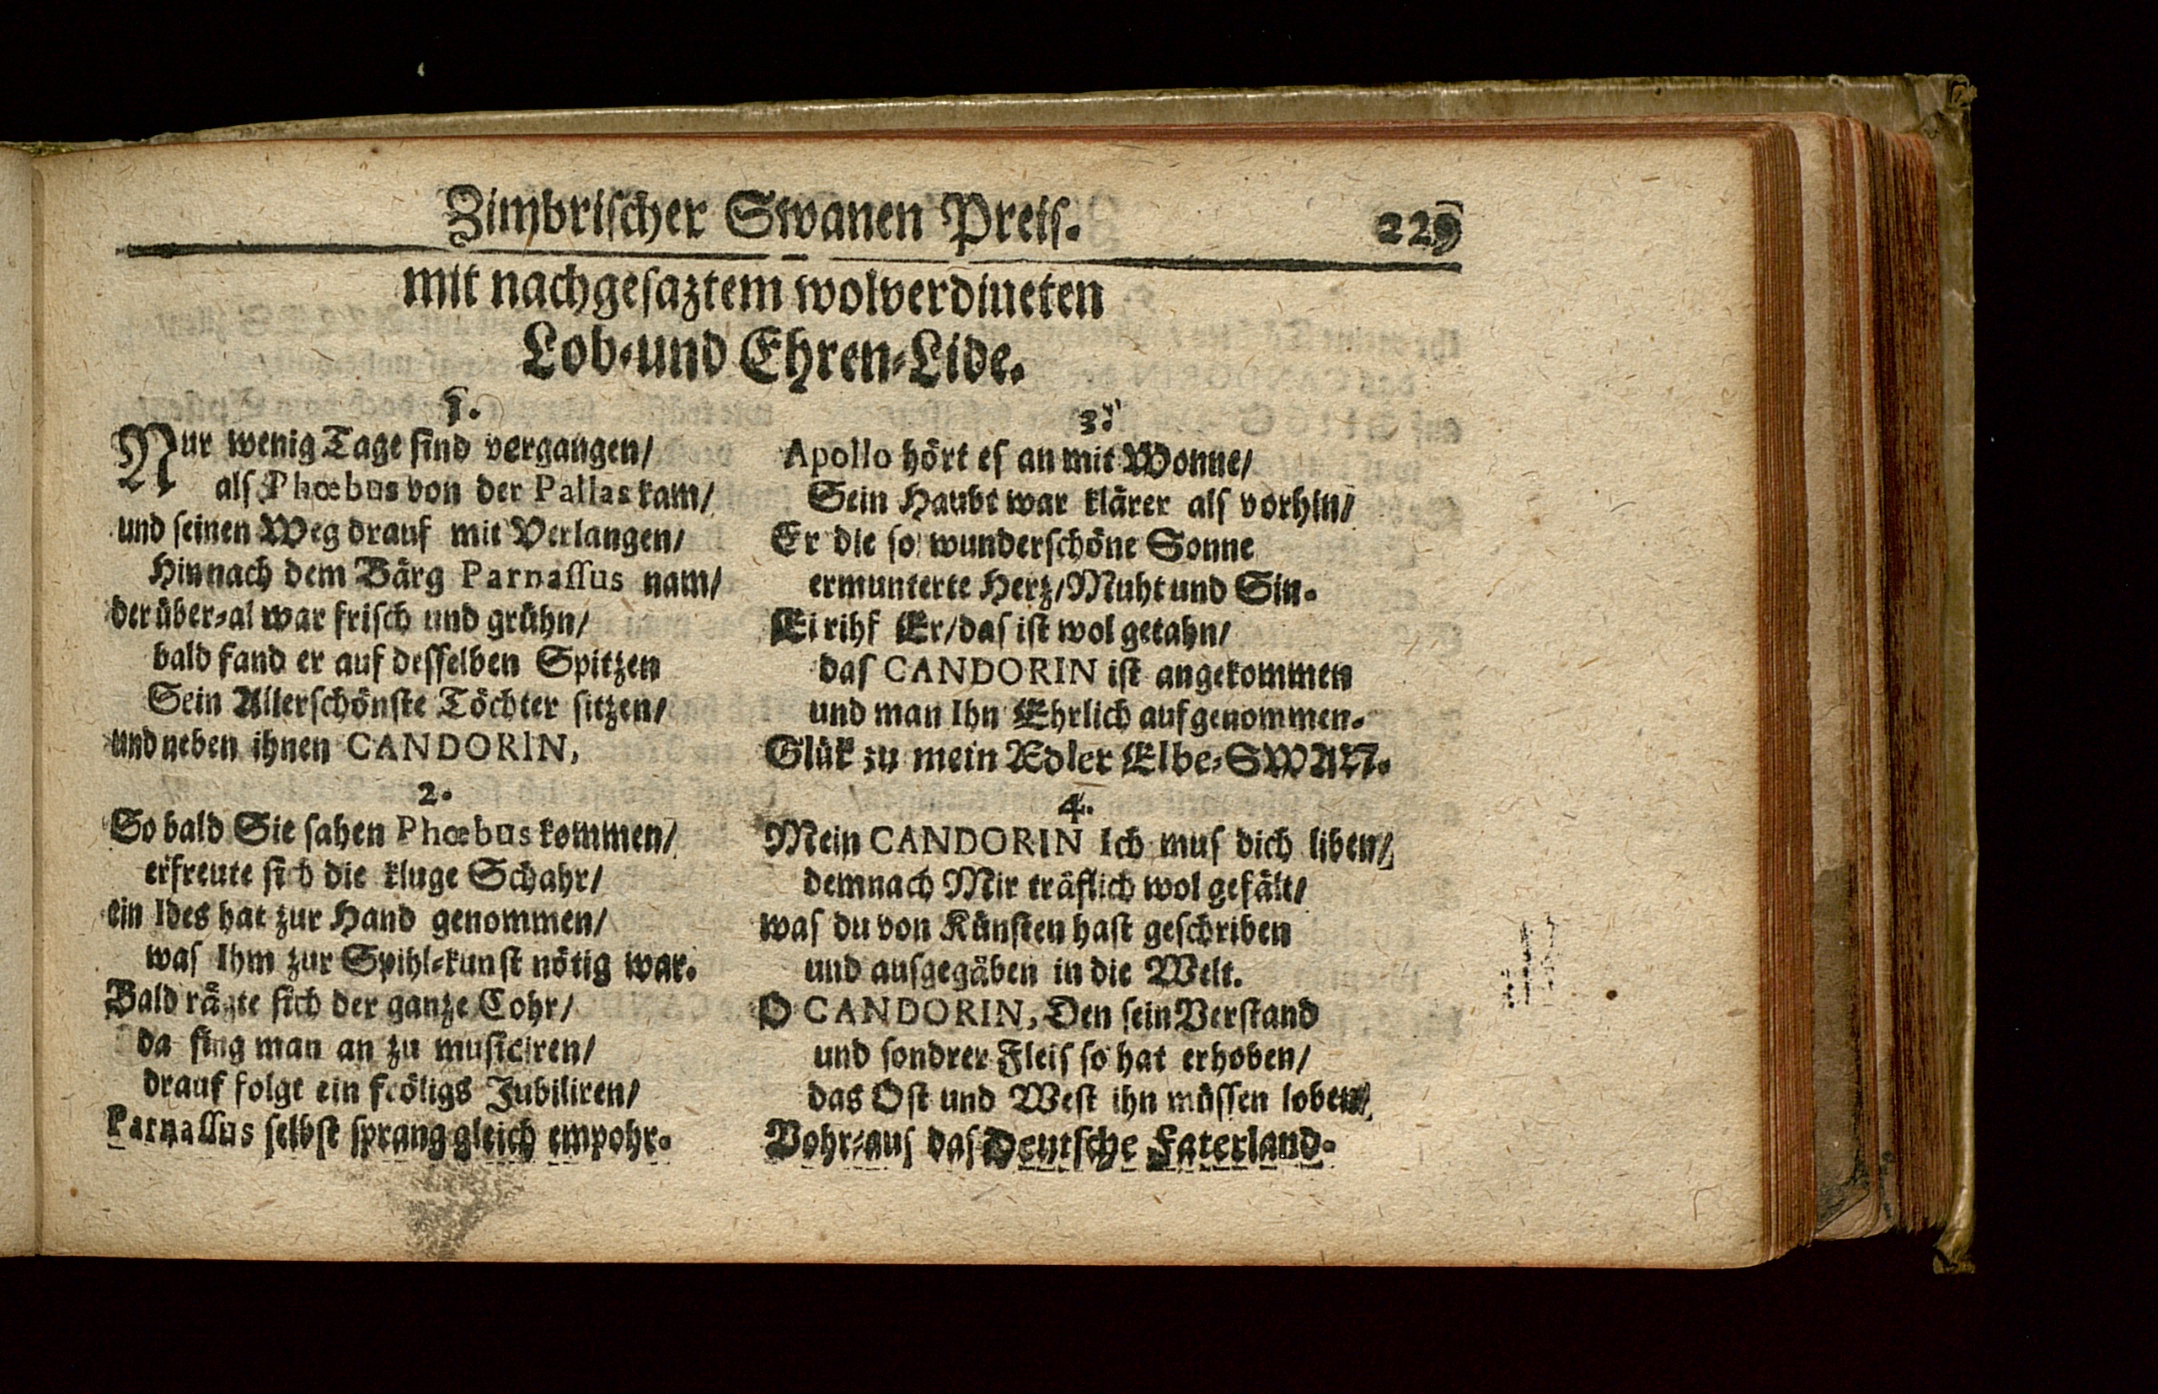 Zimbrischer Swanen Preis. 229
mit nachgesaztem wolverdineten
Lob-und Ehren-Lide.
1.
Nur wenig Tage sind vergangen/
als Phœbus von der Pallas kam/
und seinen Weg drauf mit Verlangen/
Hin nach dem Bärg Parnassus nam/
der über-al war frisch und grühn/
bald fand er auf desselben Spitzen
Sein Allerschönste Töchter sitzen/
und neben ihnen CANDORIN,
2.
So bald Sie sahen Phœbus kommen/
erfreute sich die kluge Schahr/
ein Ides hat zur Hand genommen/
was Ihm zur Spihl-kunst nötig war.
Bald rägte sich der ganze Cohr/
da fing man an zu musiciren/
drauf folgt ein fröligs Jubiliren/
Parnassus selbst sprang gleich empohr.
3.
Apollo hört es an mit Wonne/
Sein Haubt war klärer als vorhin/
Er die so wunderschöne Sonne
ermunterte Herz/Muht und Sin.
Ei rihf Er/das ist wol getahn/
das CANDORIN ist angekommen
und man Ihn Ehrlich aufgenommen.
Glük zu mein Aedler Elbe-SWAN.
4.
Mein CANDORIN Ich mus dich liben/
demnach Mir träflich wol gefält/
was du von Künsten hast geschriben
und ausgegäben in die Welt.
O CANDORIN, Den sein Verstand
und sondrer Fleis so hat erhoben/
das Ost und West ihn müssen loben/
Vohr-aus das Deutsche Faterland.